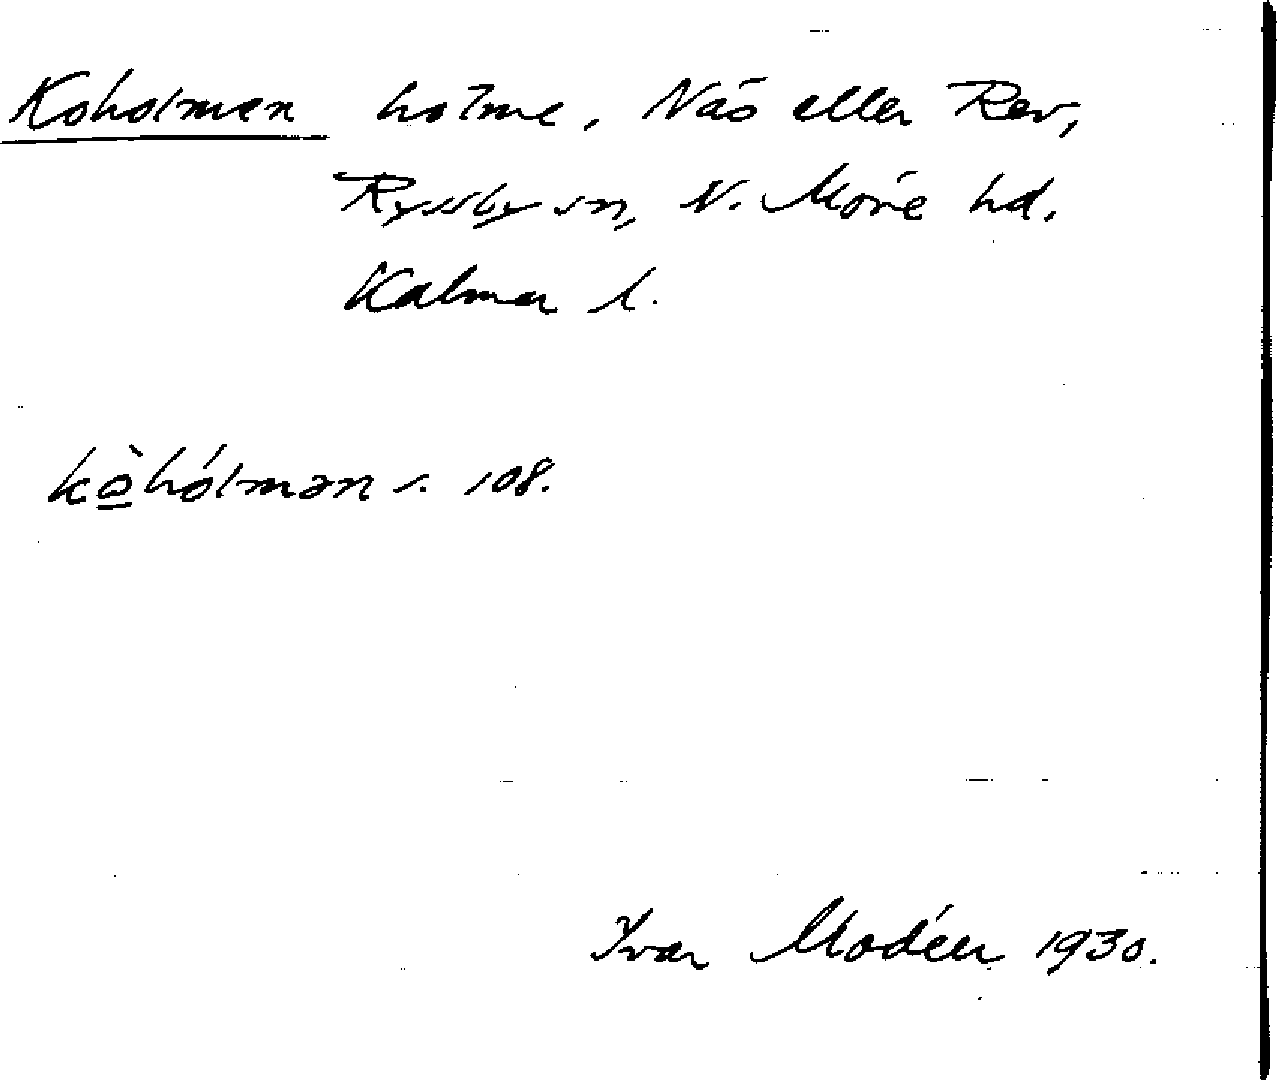 Koholmen holme, Näs eller Rev,
Ryssby sn, N. Möre hd.
Kalmar l.
kò̲hólmən s. 108.
Ivar Modéer 1930.